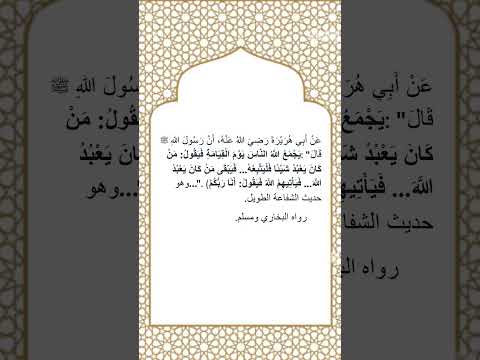 عَنْ أَبِي هُرَيْرَةَ رَضِيَ اللهُ عَنْهُ، أَنَّ رَسُولَ اللهِ ﷺ
قَالَ" :يَجْمَعُ اللهُ النَّاسَ يَوْمَ الْقِيَامَةِ فَيَقُولُ: مَنْ
كَانَ يَعْبُدُ شَيْئًا فَلْيَتْبَعْهُ... فَيَبْقَى مَنْ كَانَ يَعْبُدُ
اللهَ... فَيَأْتِيهِمُ اللهُ فَيَقُولُ: أَنَا رَبُّكُمْ) ."...وهو
حديث الشفاعة الطويل.
رواه البخاري ومسلم.